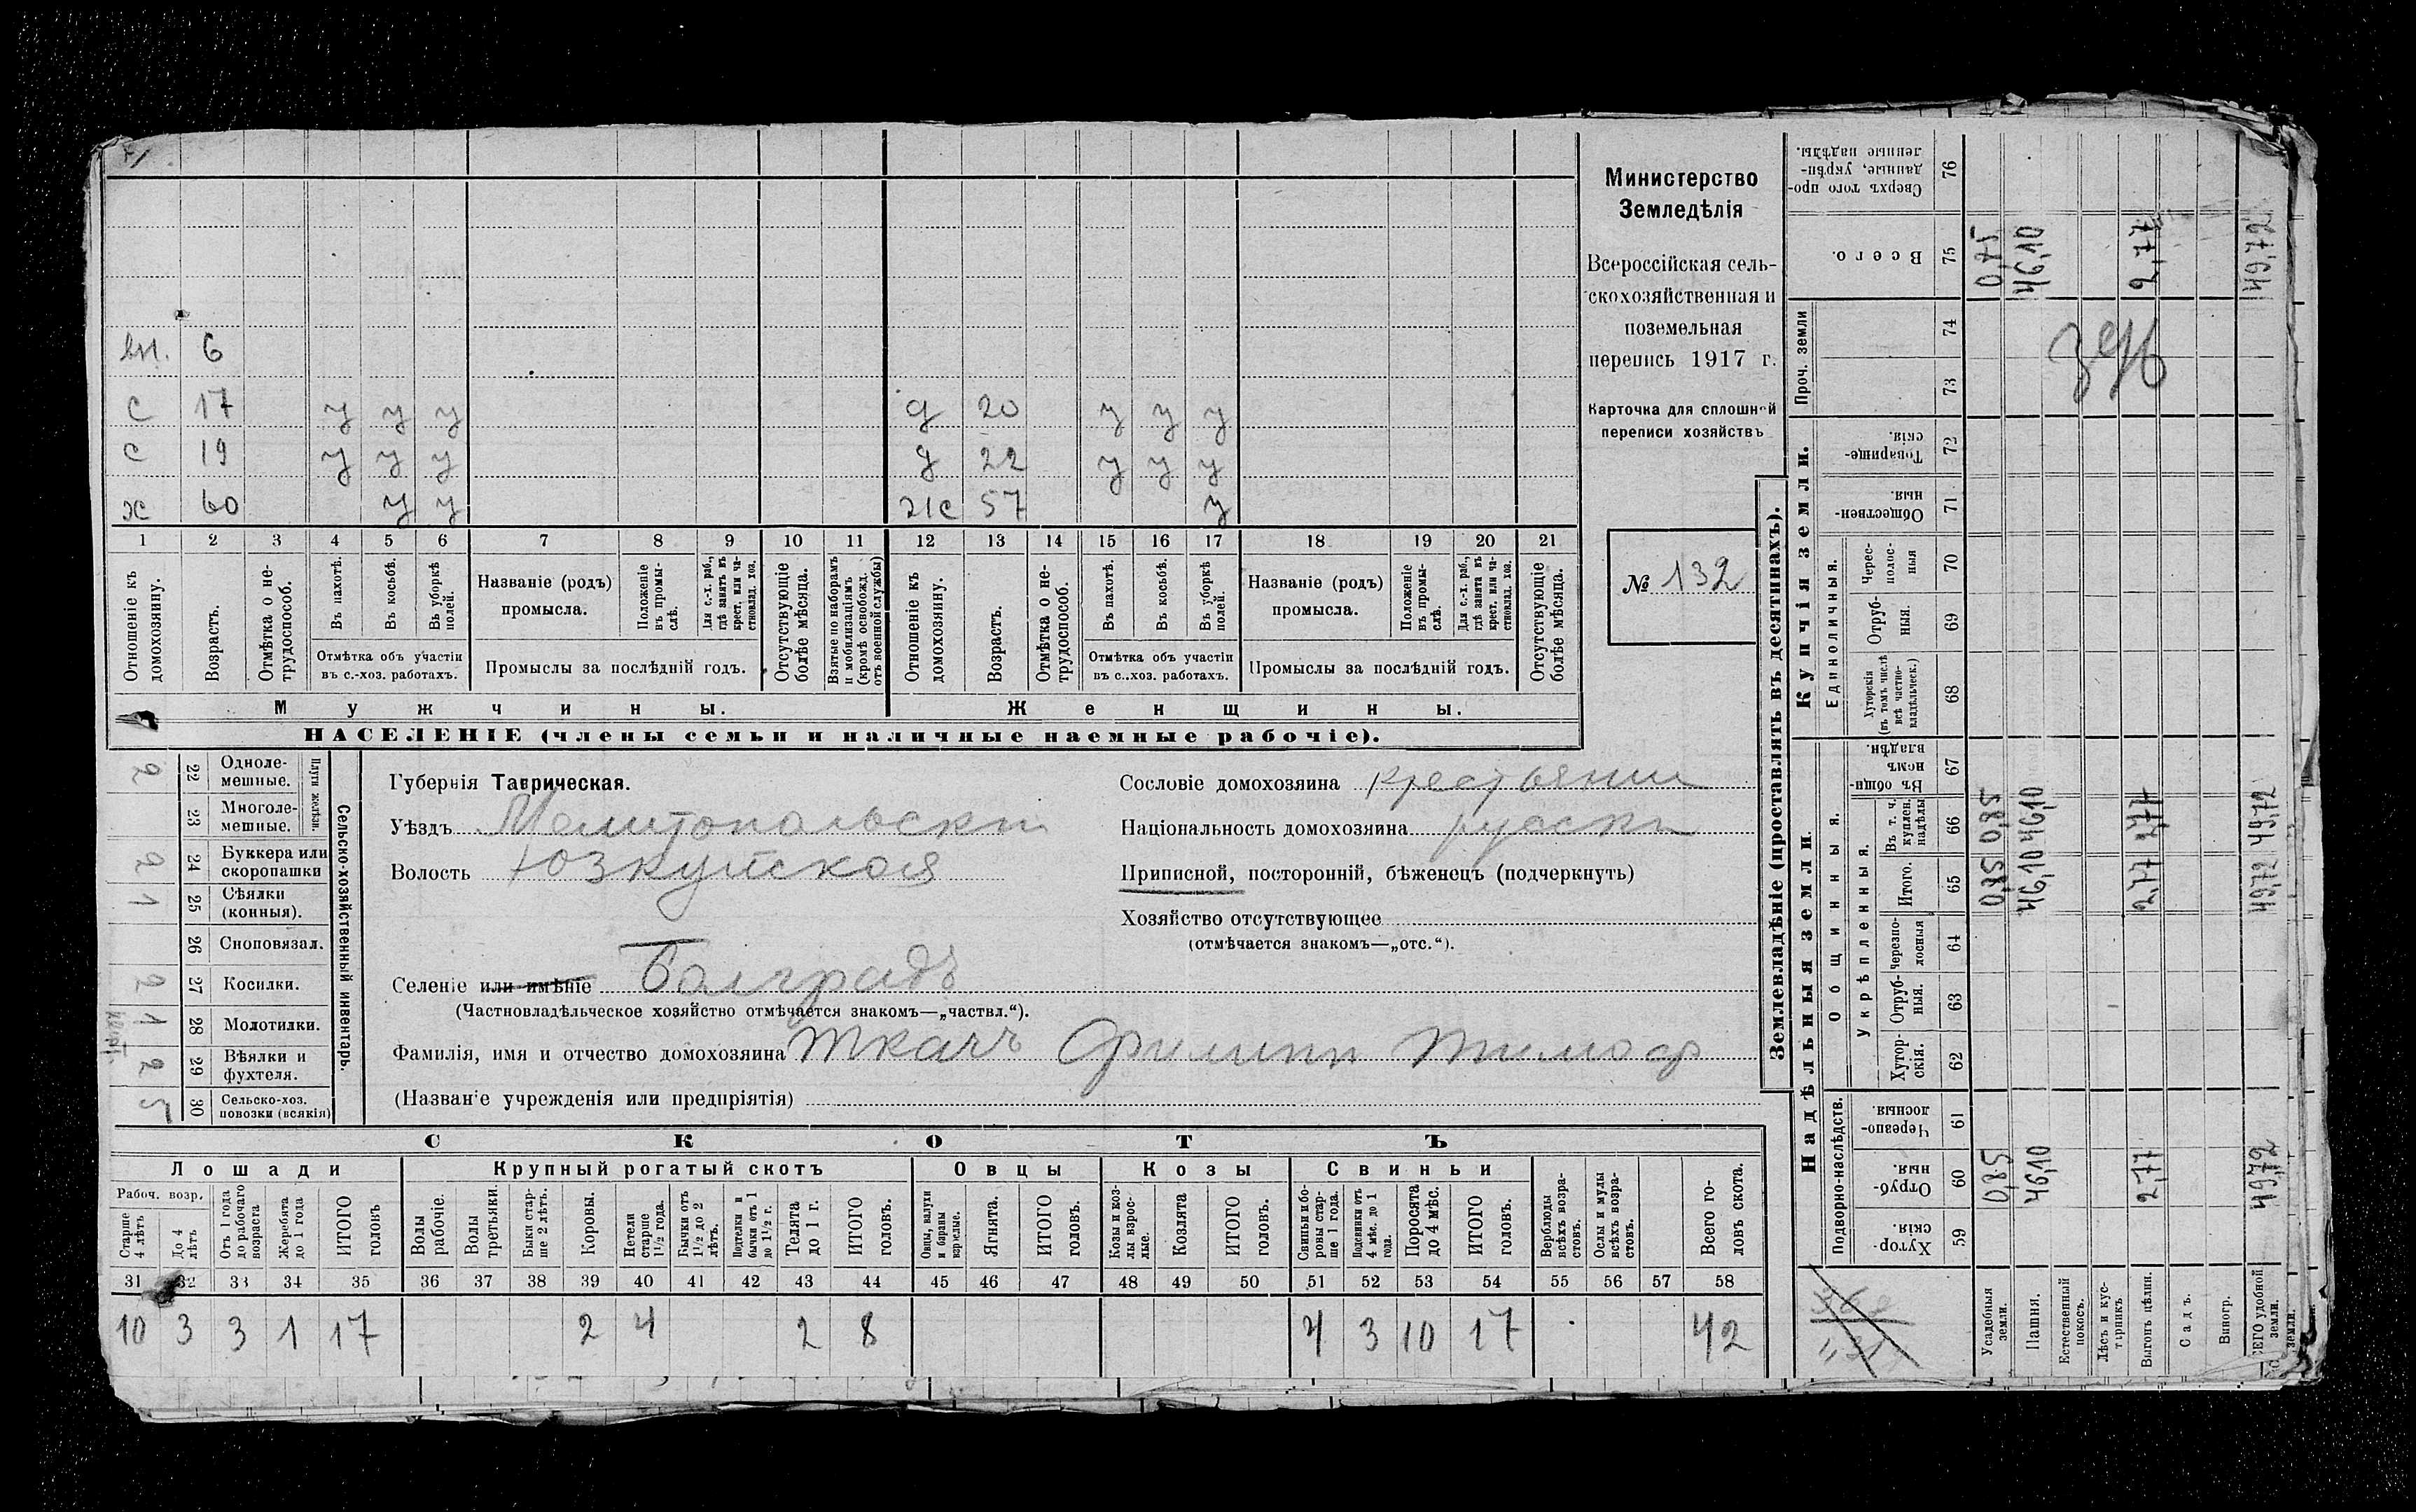 Министерство
Земледѣлія
Всероссійская сель-
скохозяйственная и
поземельная
перепись 1917 г.
Карточка для сплошной
переписи хозяйствъ
№ 132
вн. 6
с 17 у у у д 20 у у у
с 19 у у у д 22 у у у
х 60 у у ж 57 у
1 2 3 4 5 6 7 8 9 10 11 12 13 14 15 16 17 18 19 20 21
Отношеніе къ домохозяину.
Возрастъ.
Отмѣтка о не-трудоспособ.
Въ пахотѣ.
Въ косьбѣ.
Въ уборкѣ полей.
Отмѣтка объ участіи
въ с.-хоз. работахъ.
Названіе (родъ)
промысла.
Положеніе въ промы-слѣ.
Для с.-х. раб., гдѣ занятъ въ крест. или ча-стновлад. хоз.
Промыслы за послѣдній годъ.
Отсутствующіе болѣе мѣсяца.
Взятые по наборамъ и мобилизаціямъ (кромѣ освобожд. отъ военной службы)
Отношеніе къ домохозяину.
Возрастъ.
Отмѣтка о не-трудоспособ.
Въ пахотѣ.
Въ косьбѣ.
Въ уборкѣ полей.
Отмѣтка объ участіи
въ с..хоз. работахъ.
Названіе (родъ)
промысла.
Положеніе въ промы-слѣ.
Для с.-х. раб., гдѣ занята въ крест. или ча-стновлад. хоз.
Промыслы за послѣдній годъ.
Отсутствующіе болѣе мѣсяца.
Мужчины. Женщины.
НАСЕЛЕНІЕ (члены семьи и наличные наемные рабочіе).
Сельско-хозяйственный инвентарь.
Плуги желѣзн.
2 22 Одноле-мешные.
23 Многоле-мешные.
2 24 Буккера или скоропашки
1 25 Сѣялки (конныя).
26 Сноповязал.
2 27 Косилки.
1 28 Молотилки.
2 29 Вѣялки и фухтеля.
5 30 Сельско-хоз. повозки (всякія)
Губернія Таврическая.
Уѣздъ Мелитопольски
Волость Юзкуйская
Селеніе или имѣніе Болградъ
(Частновладѣльческое хозяйство отмѣчается знакомъ—„частвл.“).
Фамилія, имя и отчество домохозяина Ткачъ Филипп Тимоф
(Названіе учрежденія или предпріятія)
Сословіе домохозяина крестьянин
Національность домохозяина русски
Приписной, посторонній, бѣженецъ (подчеркнуть)
Хозяйство отсутствующее
(отмѣчается знакомъ—„отс.“).
СКОТЪ
Лошади Крупный рогатый скотъ Овцы Козы Свиньи
Рабоч. возр.
Старше 4 лѣтъ
До 4 лѣтъ
Отъ 1 года до рабочаго возраста
Жеребята до 1 года
ИТОГО головъ
Волы рабочіе.
Волы третьяки.
Быки стар-ше 2 лѣтъ.
Коровы.
Нетели старше 1½ года.
Бычки отъ 1½ до 2 лѣтъ.
Подтелки и бычки отъ 1 до 1½ г.
Телята до 1 г.
ИТОГО головъ.
Овцы, валухи и бараны взрослые.
Ягнята.
ИТОГО головъ.
Козы и коз-лы взрос-лые.
Козлята
ИТОГО головъ.
Свиньи и бо-ровы стар-ше 1 года.
Подсвинки отъ 4 мѣс. до 1 года.
Поросята до 4 мѣс.
ИТОГО головъ.
Верблюды всѣхъ возра-стовъ.
Ослы и мулы всѣхъ возра-стовъ.
Всего го-ловъ скота.
31 32 33 34 35 36 37 38 39 40 41 42 43 44 45 46 47 48 49 50 51 52 53 54 55 56 57 58
10 3 3 1 17 2 4 2 8 4 3 10 17 42
Землевладѣніе (проставлять въ десятинахъ).
Купчія земли.
Надѣльныя земли.
Сверхъ того про-данные, укрѣп-ленные надѣлы. 76
Всего. 75 0,85 46,10 2,77 49,72
Проч. земли 74
73
Товарище-скія. 72
Обществен-ныя. 71
Единоличныя.
Черес-полос-ныя 70
Отруб-ныя. 69
Хуторскія (въ томъ числѣ всѣ частно-владѣльческ.) 68
Общинныя.
Въ общин-номъ владѣн. 67
Укрѣпленныя.
Въ т. ч. куплен. надѣлы 66 0,85 46,10 2,77 49,72
Итого. 65 0,85 46,10 2,77 49,72
Черезпо-лосныя 64
Отруб-ныя. 63
Хутор-скія. 62
Подворно-наслѣдств.
Черезпо-лосныя. 61
Отруб-ныя. 60 0,85 46,10 2,77 49,72
Хутор-скія. 59
Усадебныя земли.
Пашня.
Естественный покосъ.
Лѣсъ и кус-тарникъ
Выгонъ цѣлин.
Садъ.
Виногр.
ВСЕГО удобной земли.